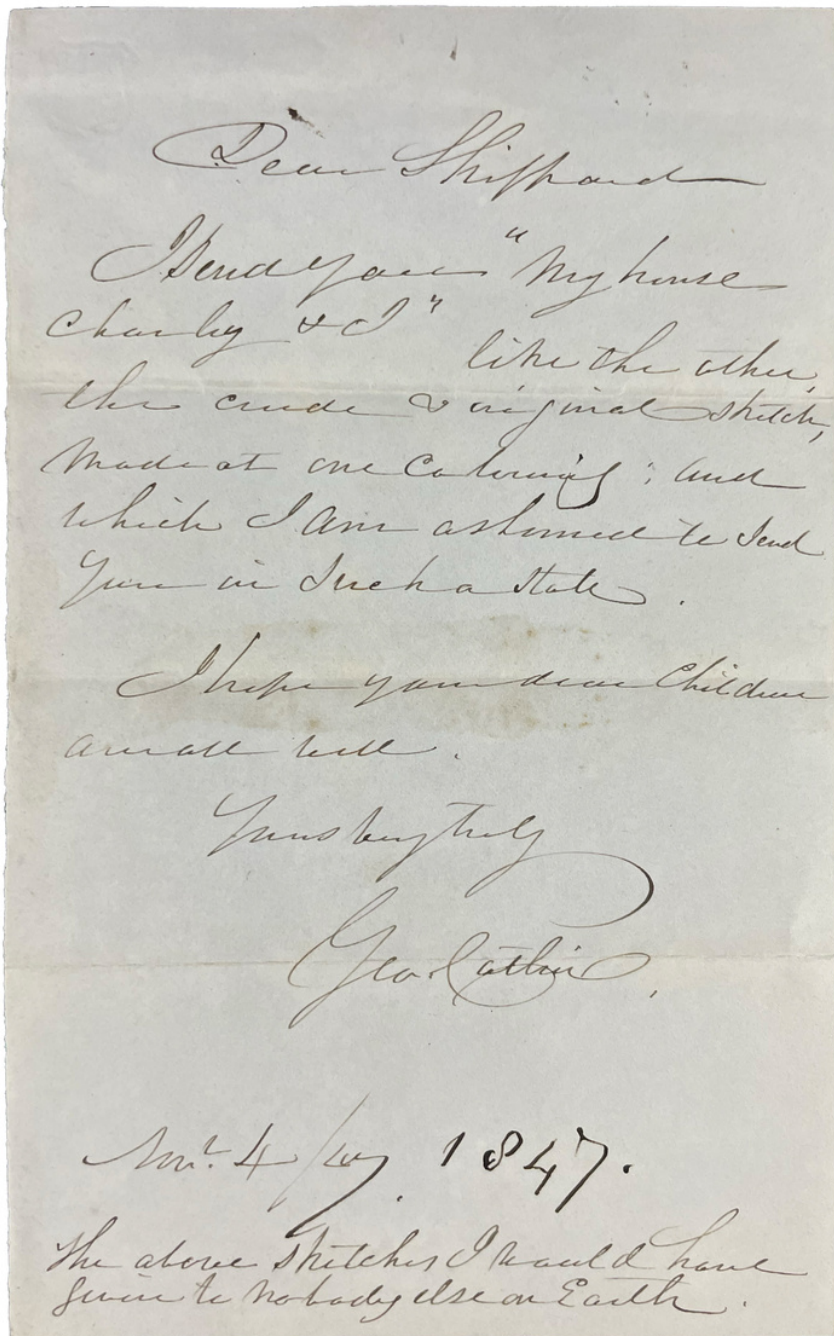 Dear Shippard
I Send you "My horse
Charley & I" like the other,
the crude & original sketch,
Made at one Colouring; and
which I am ashamed to Send
you in Such a State.
I hope your dear Children
are all well.
Yours very truly
Geo. Catlin,
Novr. 4/47. 1847.
The above sketches I would have
given to nobody else on Earth.